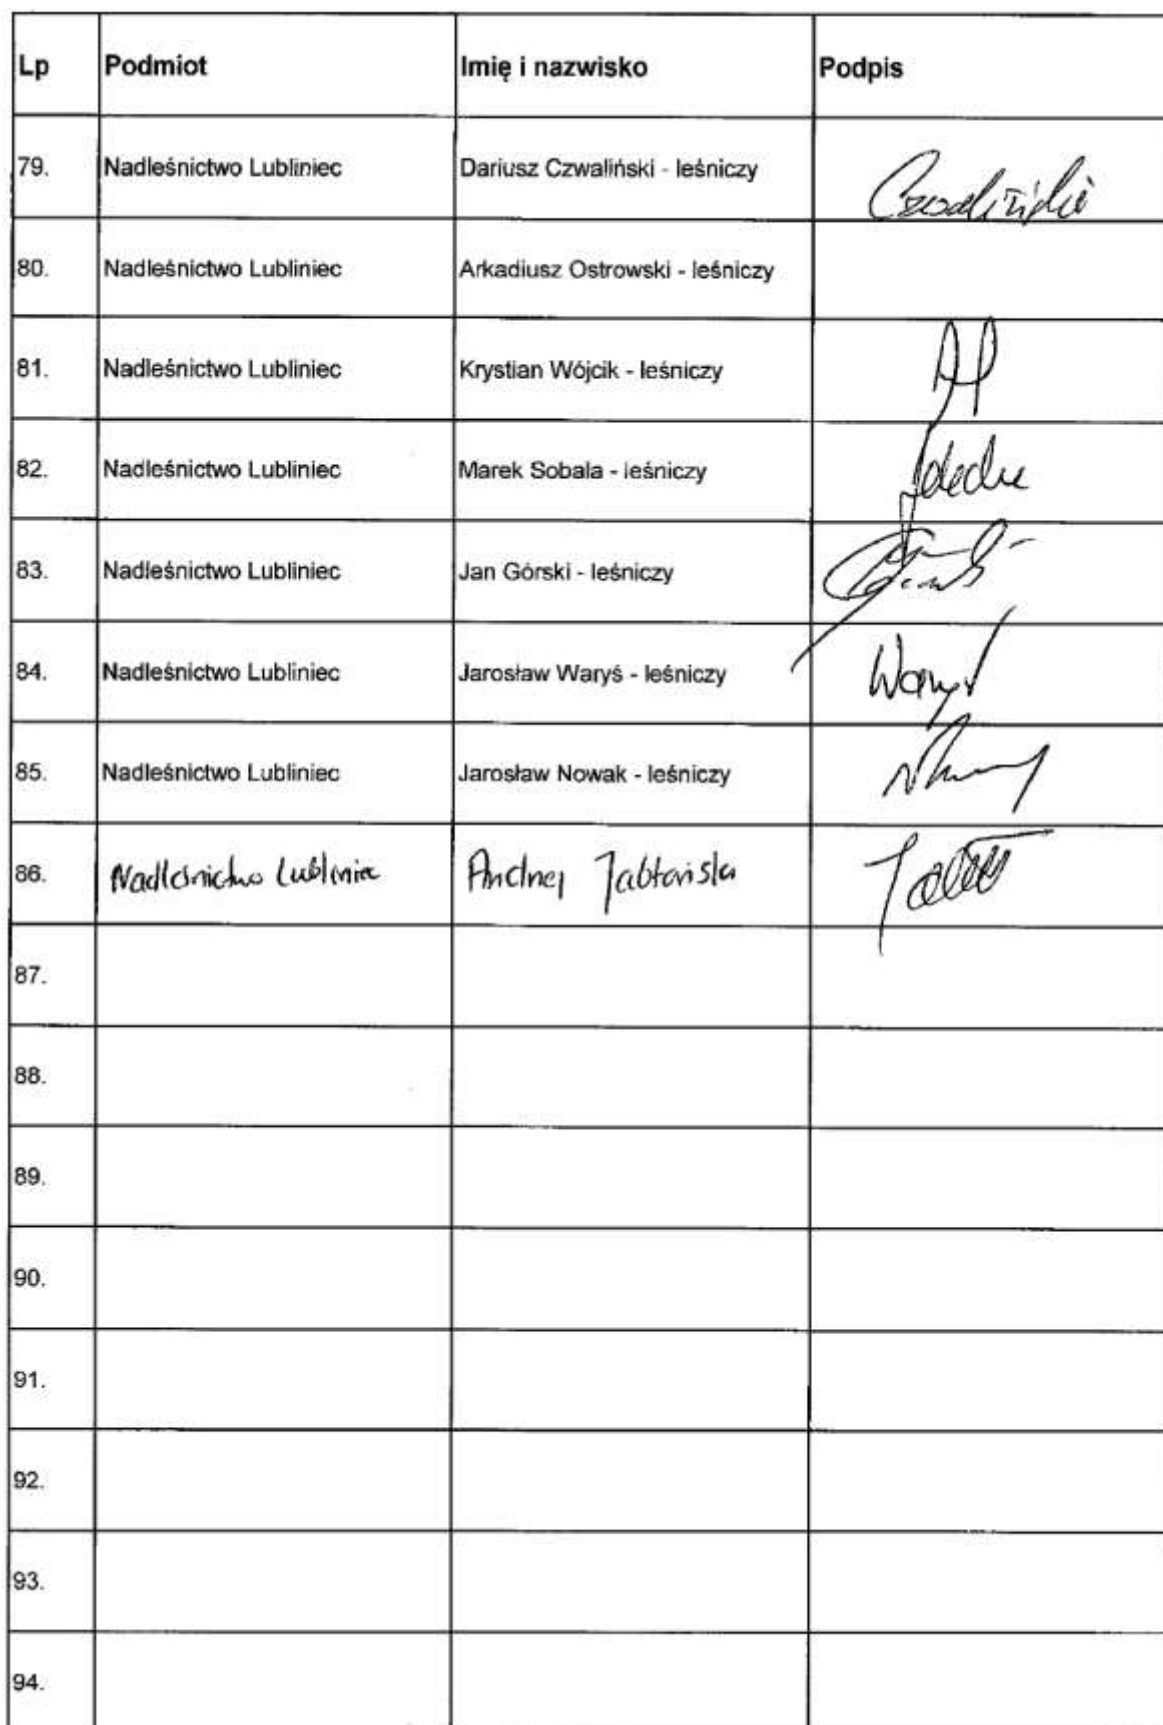 Lp Podmiot Imię i nazwisko Podpis
79. Nadleśnictwo Lubliniec Dariusz Czwaliński - leśniczy Czwaliński
80. Nadleśnictwo Lubliniec Arkadiusz Ostrowski - leśniczy
81. Nadleśnictwo Lubliniec Krystian Wójcik - leśniczy
82. Nadleśnictwo Lubliniec Marek Sobala - leśniczy
83. Nadleśnictwo Lubliniec Jan Górski - leśniczy
84. Nadleśnictwo Lubliniec Jarosław Waryś - leśniczy Waryś
85. Nadleśnictwo Lubliniec Jarosław Nowak - leśniczy
86. Nadleśnictwo Lubliniec Andrzej Jabłoński
87.
88.
89.
90.
91.
92.
93.
94.